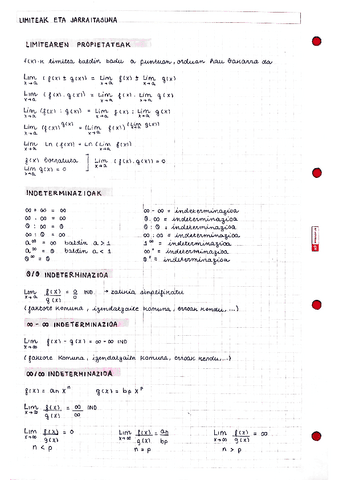 LIMITEAK ETA JARRAITASUNA
LIMITEAREN PROPIETATEAK
f(x)-k limitea baldin badu a puntuan, orduan hau bakarra da
Lim x→a (f(x) ± g(x)) = Lim x→a f(x) ± Lim x→a g(x)
Lim x→a (f(x) · g(x)) = Lim x→a f(x) · Lim x→a g(x)
Lim x→a (f(x) : g(x)) = Lim x→a f(x) : Lim x→a g(x)
Lim x→a (f(x))^g(x) = (Lim x→a f(x))^(Lim x→a g(x))
Lim x→a Ln (f(x)) = Ln (Lim x→a f(x))
f(x) bornatua
Lim x→a g(x) = 0 ] Lim x→a (f(x) · g(x)) = 0
INDETERMINAZIOAK
∞ + ∞ = ∞ ∞ - ∞ = indeterminazioa
∞ · ∞ = ∞ 0 · ∞ = indeterminazioa
0 : ∞ = 0 0 : 0 = indeterminazioa
∞ : 0 = ∞ ∞ : ∞ = indeterminazioa
a^∞ = ∞ baldin a > 1 1^∞ = indeterminazioa
a^∞ = 0 baldin a < 1 ∞^0 = indeterminazioa
0^∞ = 0 0^0 = indeterminazioa
0/0 INDETERMINAZIOA
Lim x→a f(x)/g(x) = 0/0 IND → zatikia sinplifikatu
(faktore komuna, izendatzaile komuna, erroak kendu, ...)
∞ - ∞ INDETERMINAZIOA
Lim x→∞ f(x) - g(x) = ∞ - ∞ IND
(faktore komuna, izendatzaile komuna, erroak kendu, ...)
∞/∞ INDETERMINAZIOA
f(x) = an x^n g(x) = bp x^p
Lim x→∞ f(x)/g(x) = ∞/∞ IND
Lim x→∞ f(x)/g(x) = 0 Lim x→∞ f(x)/g(x) = an/bp Lim x→∞ f(x)/g(x) = ∞
n < p n = p n > p